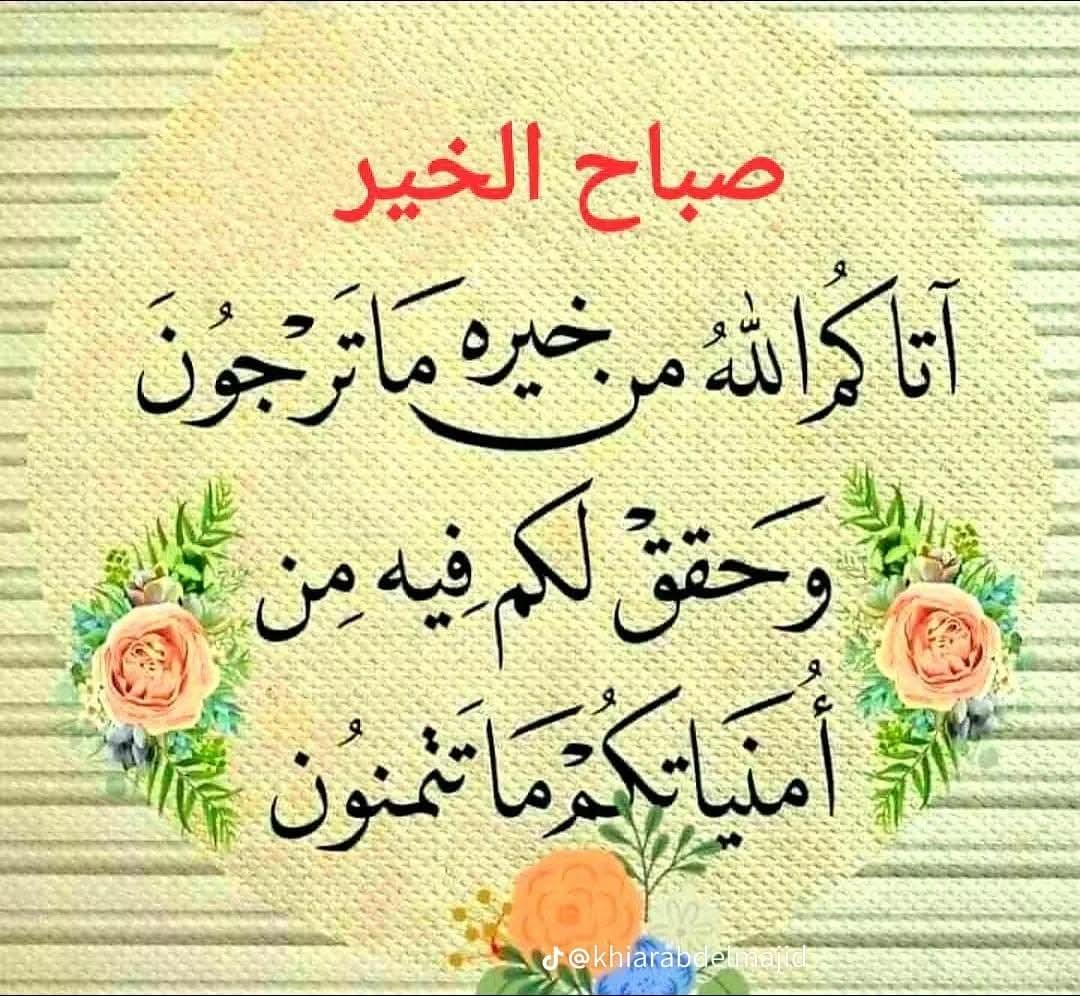 صباح الخير
آتاكُم اللهُ من خيره مَا تَرْجُونَ
وَحَققْ لكم فِيه مِن
أُمنيَاتكُمْ مَا تَتمنوُن
@khiarabdelmajid